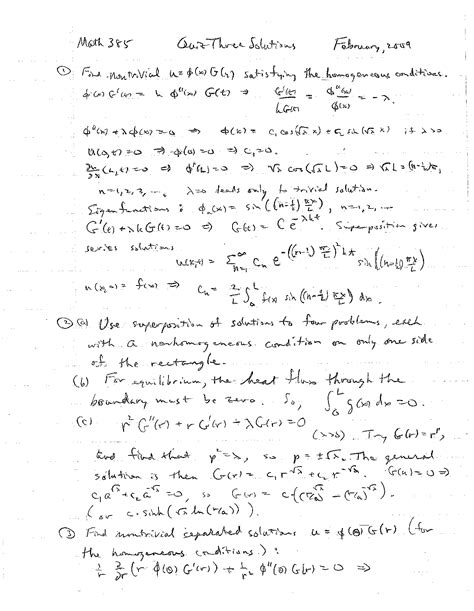 Math 385 Quiz Three Solutions February, 2009
① Find nontrivial u = φ(x) G(t) satisfying the homogeneous conditions.
φ(x) G'(t) = k φ''(x) G(t) ⇒ G'(t)/kG(t) = φ''(x)/φ(x) = -λ.
φ''(x) + λφ(x) = 0 ⇒ φ(x) = c₁ cos(√λ x) + c₂ sin(√λ x) if λ > 0
u(0,t) = 0 ⇒ φ(0) = 0 ⇒ c₁ = 0.
∂u/∂x (L,t) = 0 ⇒ φ'(L) = 0 ⇒ √λ cos(√λ L) = 0 ⇒ √λ L = (n-½)π,
n = 1, 2, 3, .... λ = 0 leads only to trivial solution.
Eigenfunctions: φₙ(x) = sin((n-½) πx/L), n = 1, 2, ...
G'(t) + λkG(t) = 0 ⇒ G(t) = C e^{-λkt}. Superposition gives
series solutions
u(x,t) = Σ_{n=1}^∞ cₙ e^{-((n-½) π/L)² kt} sin((n-½) πx/L)
u(x,0) = f(x) ⇒ cₙ = 2/L ∫₀^L f(x) sin((n-½) πx/L) dx.
② (a) Use superposition of solutions to four problems, each
with a nonhomogeneous condition on only one side
of the rectangle.
(b) For equilibrium, the heat flux through the
boundary must be zero. So, ∫₀^L g(x) dx = 0.
(c) r² G''(r) + r G'(r) - λG(r) = 0
(λ>0). Try G(r) = r^p,
and find that p² = λ, so p = ±√λ. The general
solution is then G(r) = c₁ r^{√λ} + c₂ r^{-√λ}. G(a) = 0 ⇒
c₁ a^{√λ} + c₂ a^{-√λ} = 0, so G(r) = c{(r/a)^{√λ} - (r/a)^{-√λ}}.
(or c · sinh(√λ ln(r/a)).
③ Find nontrivial separated solutions u = φ(θ) G(r) (for
the homogeneous conditions):
1/r ∂/∂r (r φ(θ) G'(r)) + 1/r² φ''(θ) G(r) = 0 ⇒